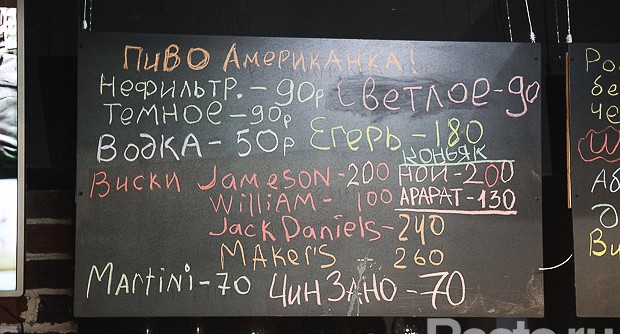 ПИВО АМЕРИКАНКА!
НЕФИЛЬТР.-90р СВЕТЛОЕ-90
ТЕМНОЕ-90р
ВОДКА-50р ЕГЕРЬ-180
КОНЬЯК
ВИСКИ JAMESON-200 НОЙ-200
WILLIAM-100 АРАРАТ-130
JACK DANIELS-240
MAKER'S-260
MARTINI-70 ЧИНЗАНО-70